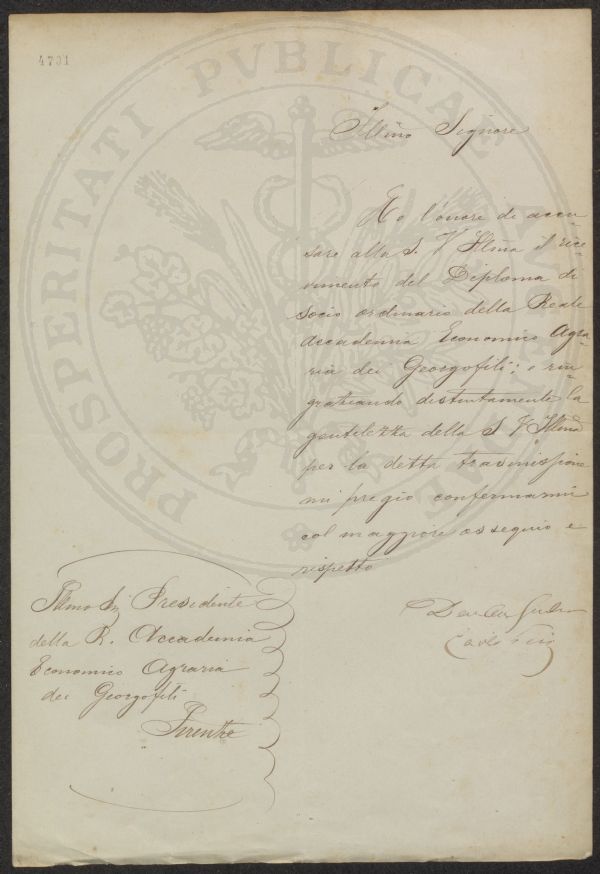 4701
PROSPERITATI PVBLICAE AVGENDAE
Illmo Signore
Ho l'onore di accu-
sare alla S. V Illma il rice-
vimento del Diploma di
socio ordinario della Reale
Accademia Economico Agra-
ria dei Georgofili; e rin-
graziando distintamente la
gentilezza della S V Illma
per la detta trasmissione
mi pregio confermarmi
col maggiore ossequio e
rispetto
Carlo
Illmo Sig Presidente
della R. Accademia
Economico Agraria
dei Georgofili
Firenze